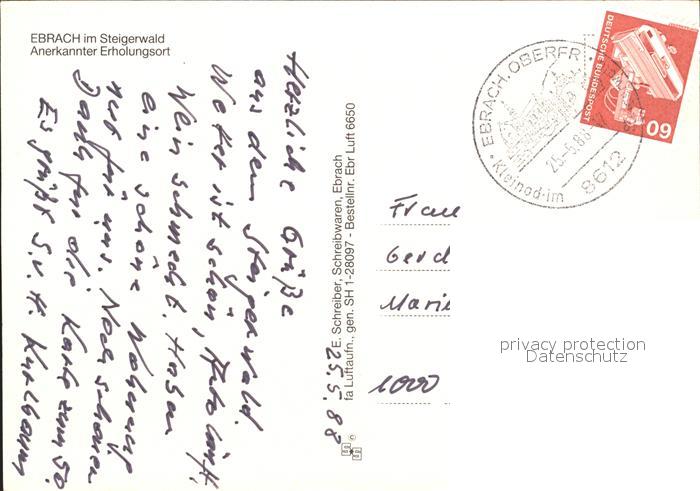 EBRACH im Steigerwald
Anerkannter Erholungsort
Herzliche Grüße
aus dem Steigerwald.
Wetter ist schön, Auto läuft,
Wein schmeckt. Haben
eine schöne Wohnung
nur für uns. Noch schönen
Dank für die Karte zum 50.
Es grüßt S. u. H. Kurlbaum
25.5.88
E. Schreiber, Schreibwaren, Ebrach
fa Luftaufn., gen. SH 1-28097 - Bestellnr. Ebr Luft 6650
Frau
Gerd
Marie
1000
privacy protection
Datenschutz
EBRACH, OBERFR
25.-5.88
8612
Kleinod im
DEUTSCHE BUNDESPOST
60